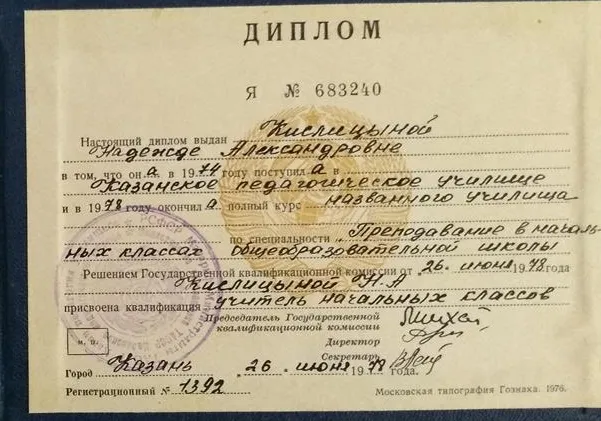 ДИПЛОМ
Я № 683240
Настоящий диплом выдан Кислицыной
Надежде Александровне
в том, что она в 1974 году поступила в
Казанское педагогическое училище
и в 1978 году окончила полный курс названного училища
по специальности Преподавание в началь-
ных классах общеобразовательной школы
Решением Государственной квалификационной комиссии от 26 июня 1978 года
Кислицыной Н.А
присвоена квалификация учитель начальных классов
Председатель Государственной
квалификационной комиссии
Директор
Секретарь
М. П.
Город Казань 26 июня 1978 года.
Регистрационный № 1392
Московская типография Гознака. 1976.